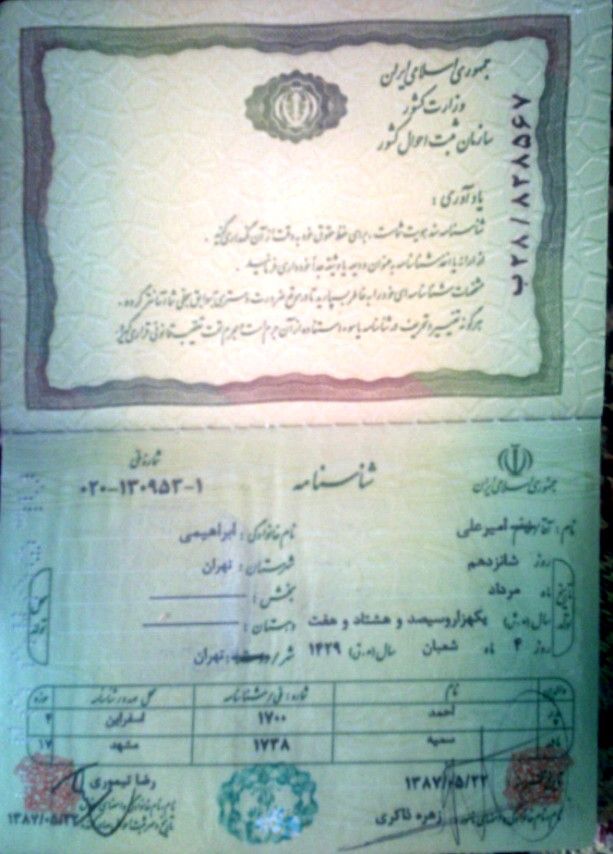 جمهوری اسلامی ایران
وزارت کشور
سازمان ثبت احوال کشور
ب۲۸/۸۲۸۵۶۷
یادآوری :
شناسنامه سند هویت شماست ، برای حفظ حقوق خود به دقت از آن نگهداری کنید .
مشخصات شناسنامه ای خود را به خاطر بسپارید تا در موقع ضرورت دسترسی به سوابق سجلی شما آسانتر گردد .
هرگونه تغییر و تحریف در شناسنامه یا سوء استفاده از آن جرم است و مجرم تحت تعقیب قانونی قرار می گیرد
جمهوری اسلامی ایران
شناسنامه
شماره ملی
۰۲۰-۱۳۰۹۵۳-۱
نام : آقا امیرعلی
نام خانوادگی : ابراهیمی
تاریخ تولد
روز شانزدهم
شهرستان : تهران
محل تولد
ماه مرداد
بخش :
سال (ه.ش) یکهزاروسیصد و هشتاد و هفت
دهستان :
روز ۴ ماه شعبان سال (ه.ق) ۱۴۲۹
شهر تهران
والدین نام شماره ملی / شناسنامه محل صدور شناسنامه حوزه
پدر احمد ۱۷۰۰ اسفراین ۴
مادر سمیه ۱۷۳۸ مشهد ۱۷
۱۳۸۷/۰۵/۲۲
رضا تیموری
زهره ذاکری
۱۳۸۷/۰۵/۲۲